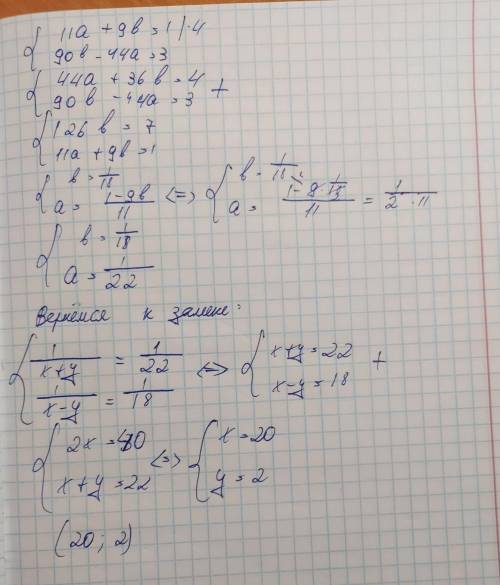 { 11a + 9b = 1 | · 4
90b - 44a = 3
{ 44a + 36b = 4
90b - 44a = 3 +
{ 126b = 7
11a + 9b = 1
{ b = 1/18
a = (1-9b)/11 <=> { b = 1/18
a = (1 - 9 · 1/18)/11 = 1/(2 · 11)
{ b = 1/18
a = 1/22
Вернёмся к замене:
{ 1/(x+y) = 1/22
1/(x-y) = 1/18 <=> { x+y = 22
x-y = 18 +
{ 2x = 40
x+y = 22 <=> { x = 20
y = 2
(20; 2)